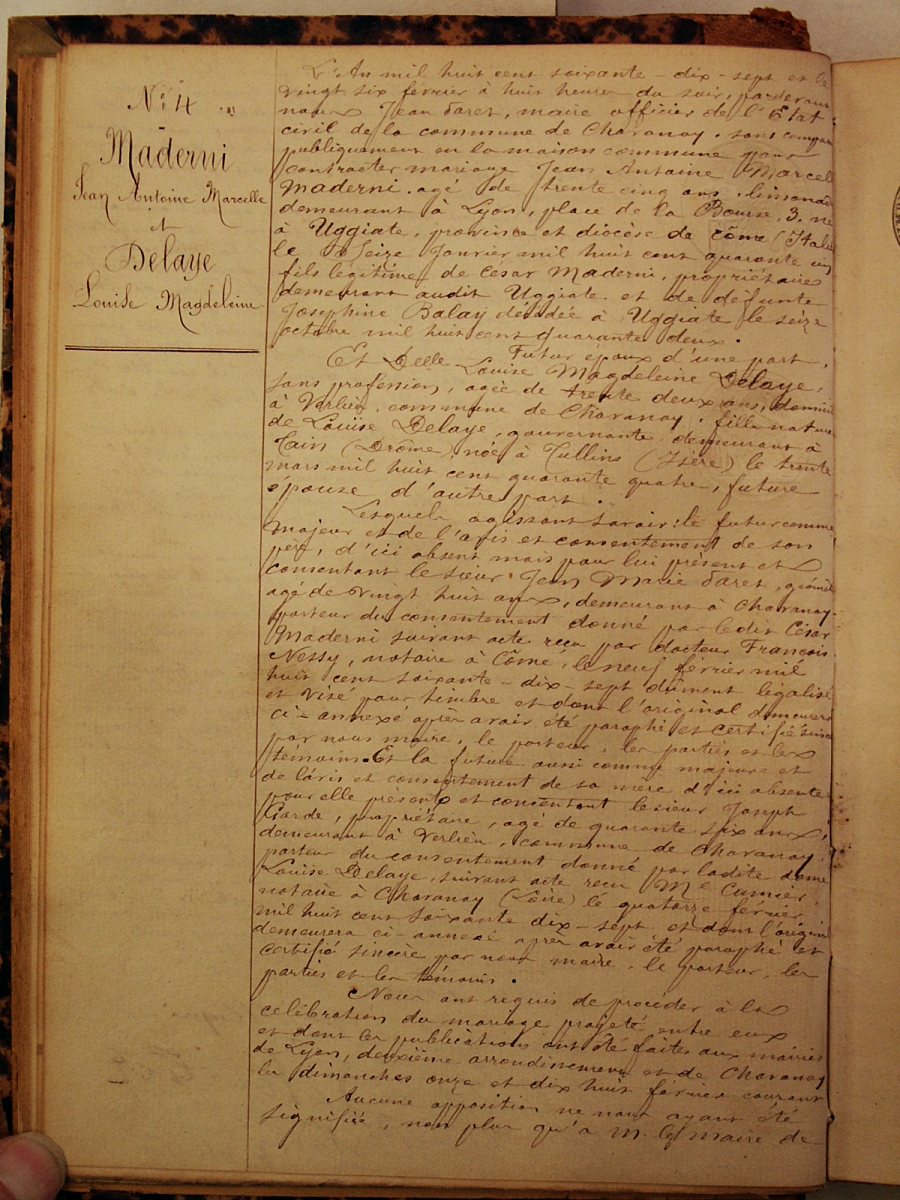 N° 4
Maderni
Jean Antoine Marcelle
et
Delaye
Louise Magdeleine
L'An mil huit cent soixante - dix - sept et le
vingt six février à huit heures du soir, pardevant
nous Jean Paret, maire officier de l'Etat
civil de la commune de Chavanay, sont compar
publiquement en la maison commune pour
contracter mariage Jean Antoine Marcel
Maderni, agé de trente cinq ans, limonad
demeurant à Lyon, place de la Bourse, 3, né
à Uggiate, province et diocèse de Côme (Italie
le Seize Janvier mil huit cent quarante un
fils légitime de César Maderni, propriétaire
demeurant audit Uggiate et de défunte
Josephine Balay décédée à Uggiate le seize
octobre mil huit cent quarante deux.
Futur epoux d'une part,
Et Delle Louise Magdeleine Delaye,
sans profession, agée de trente deux ans, domici
à Verlieu, commune de Chavanay, fille nature
de Louise Delaye, gouvernante, demeurant à
Tain (Drôme) née à Tullins (Isère) le trente
mars mil huit cent quarante quatre, future
épouse d'autre part.
Lesquels agissant savoir: le futur comme
majeur et de l'avis et consentement de son
père, d'ici absent mais pour lui présent et
consentant le sieur Jean Marie Paret, géomèt
agé de vingt huit ans, demeurant à Chavanay
porteur du consentement donné par ledit César
Maderni suivant acte reçu par docteur François
Nessy, notaire à Côme, le neuf février mil
huit cent soixante - dix - sept dûment légalisé
et visé pour timbre et dont l'original demeurera
ci-annexé après avoir été paraphé et certifié sincè
par nous maire, le porteur, les parties et les
témoins. Et la future aussi comme majeure et
de l'avis et consentement de sa mère d'ici absente
pour elle présent et consentant le sieur Joseph
Garde, propriétaire, agé de quarante six ans,
demeurant à Verlieu, commune de Chavanay,
porteur du consentement donné par ladite dame
Louise Delaye, suivant acte reçu Me Cumier,
notaire à Chavanay (Loire) le quatorze février
mil huit cent soixante dix - sept et dont l'origina
demeurera ci-annexé après avoir été paraphé et
certifié sincère par nous maire, le porteur, les
parties et les témoins.
Nous ont requis de procéder à la
célébration du mariage projeté entre eux
et dont les publications ont été faites aux mairies
de Lyon, deuxième arrondissement et de Chavanay
les dimanches onze et dix huit février courant
Aucune opposition ne nous ayant été
signifiée, non plus qu'à M. le maire de